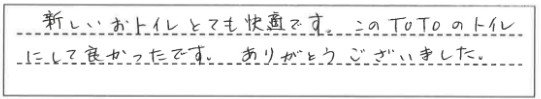 新しいおトイレとても快適です。このTOTOのトイレ
にして良かったです。ありがとうございました。